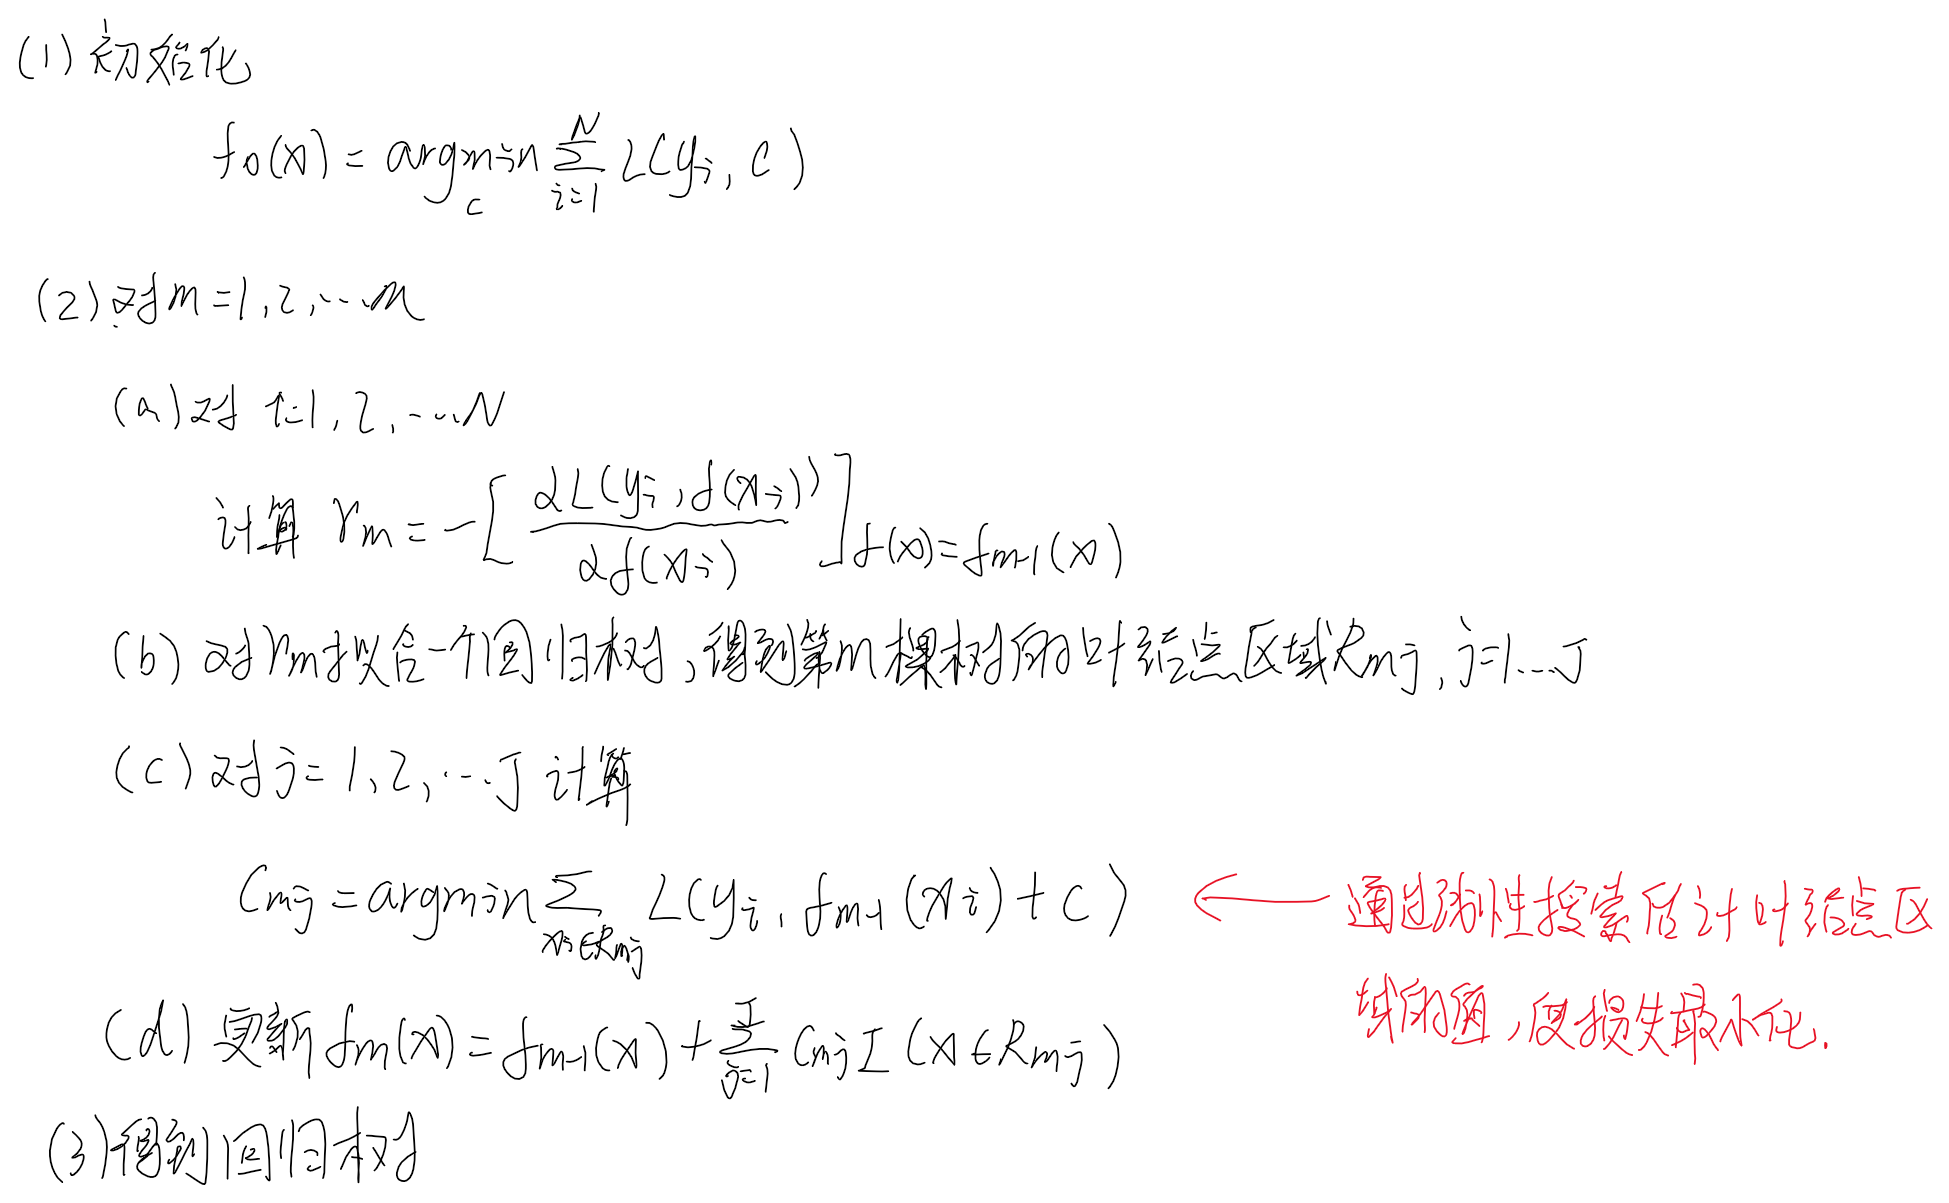 (1) 初始化
f₀(x) = argmin_c Σ_{i=1}^{N} L(yᵢ, c)
(2) 对m=1,2,...M
(a) 对 i=1,2,...N
计算 rₘ = -[∂L(yᵢ, f(xᵢ)) / ∂f(xᵢ)]_{f(x)=f_{m-1}(x)}
(b) 对rₘ拟合一个回归树,得到第m棵树的叶结点区域R_{mj}, j=1...J
(c) 对j=1,2,...J 计算
C_{mj} = argmin Σ_{xᵢ∈R_{mj}} L(yᵢ, f_{m-1}(xᵢ)+c)
← 通过线性搜索估计叶结点区
域的值,使损失最小化.
(d) 更新 fₘ(x) = f_{m-1}(x) + Σ_{j=1}^{J} C_{mj} I(x∈R_{mj})
(3) 得到回归树